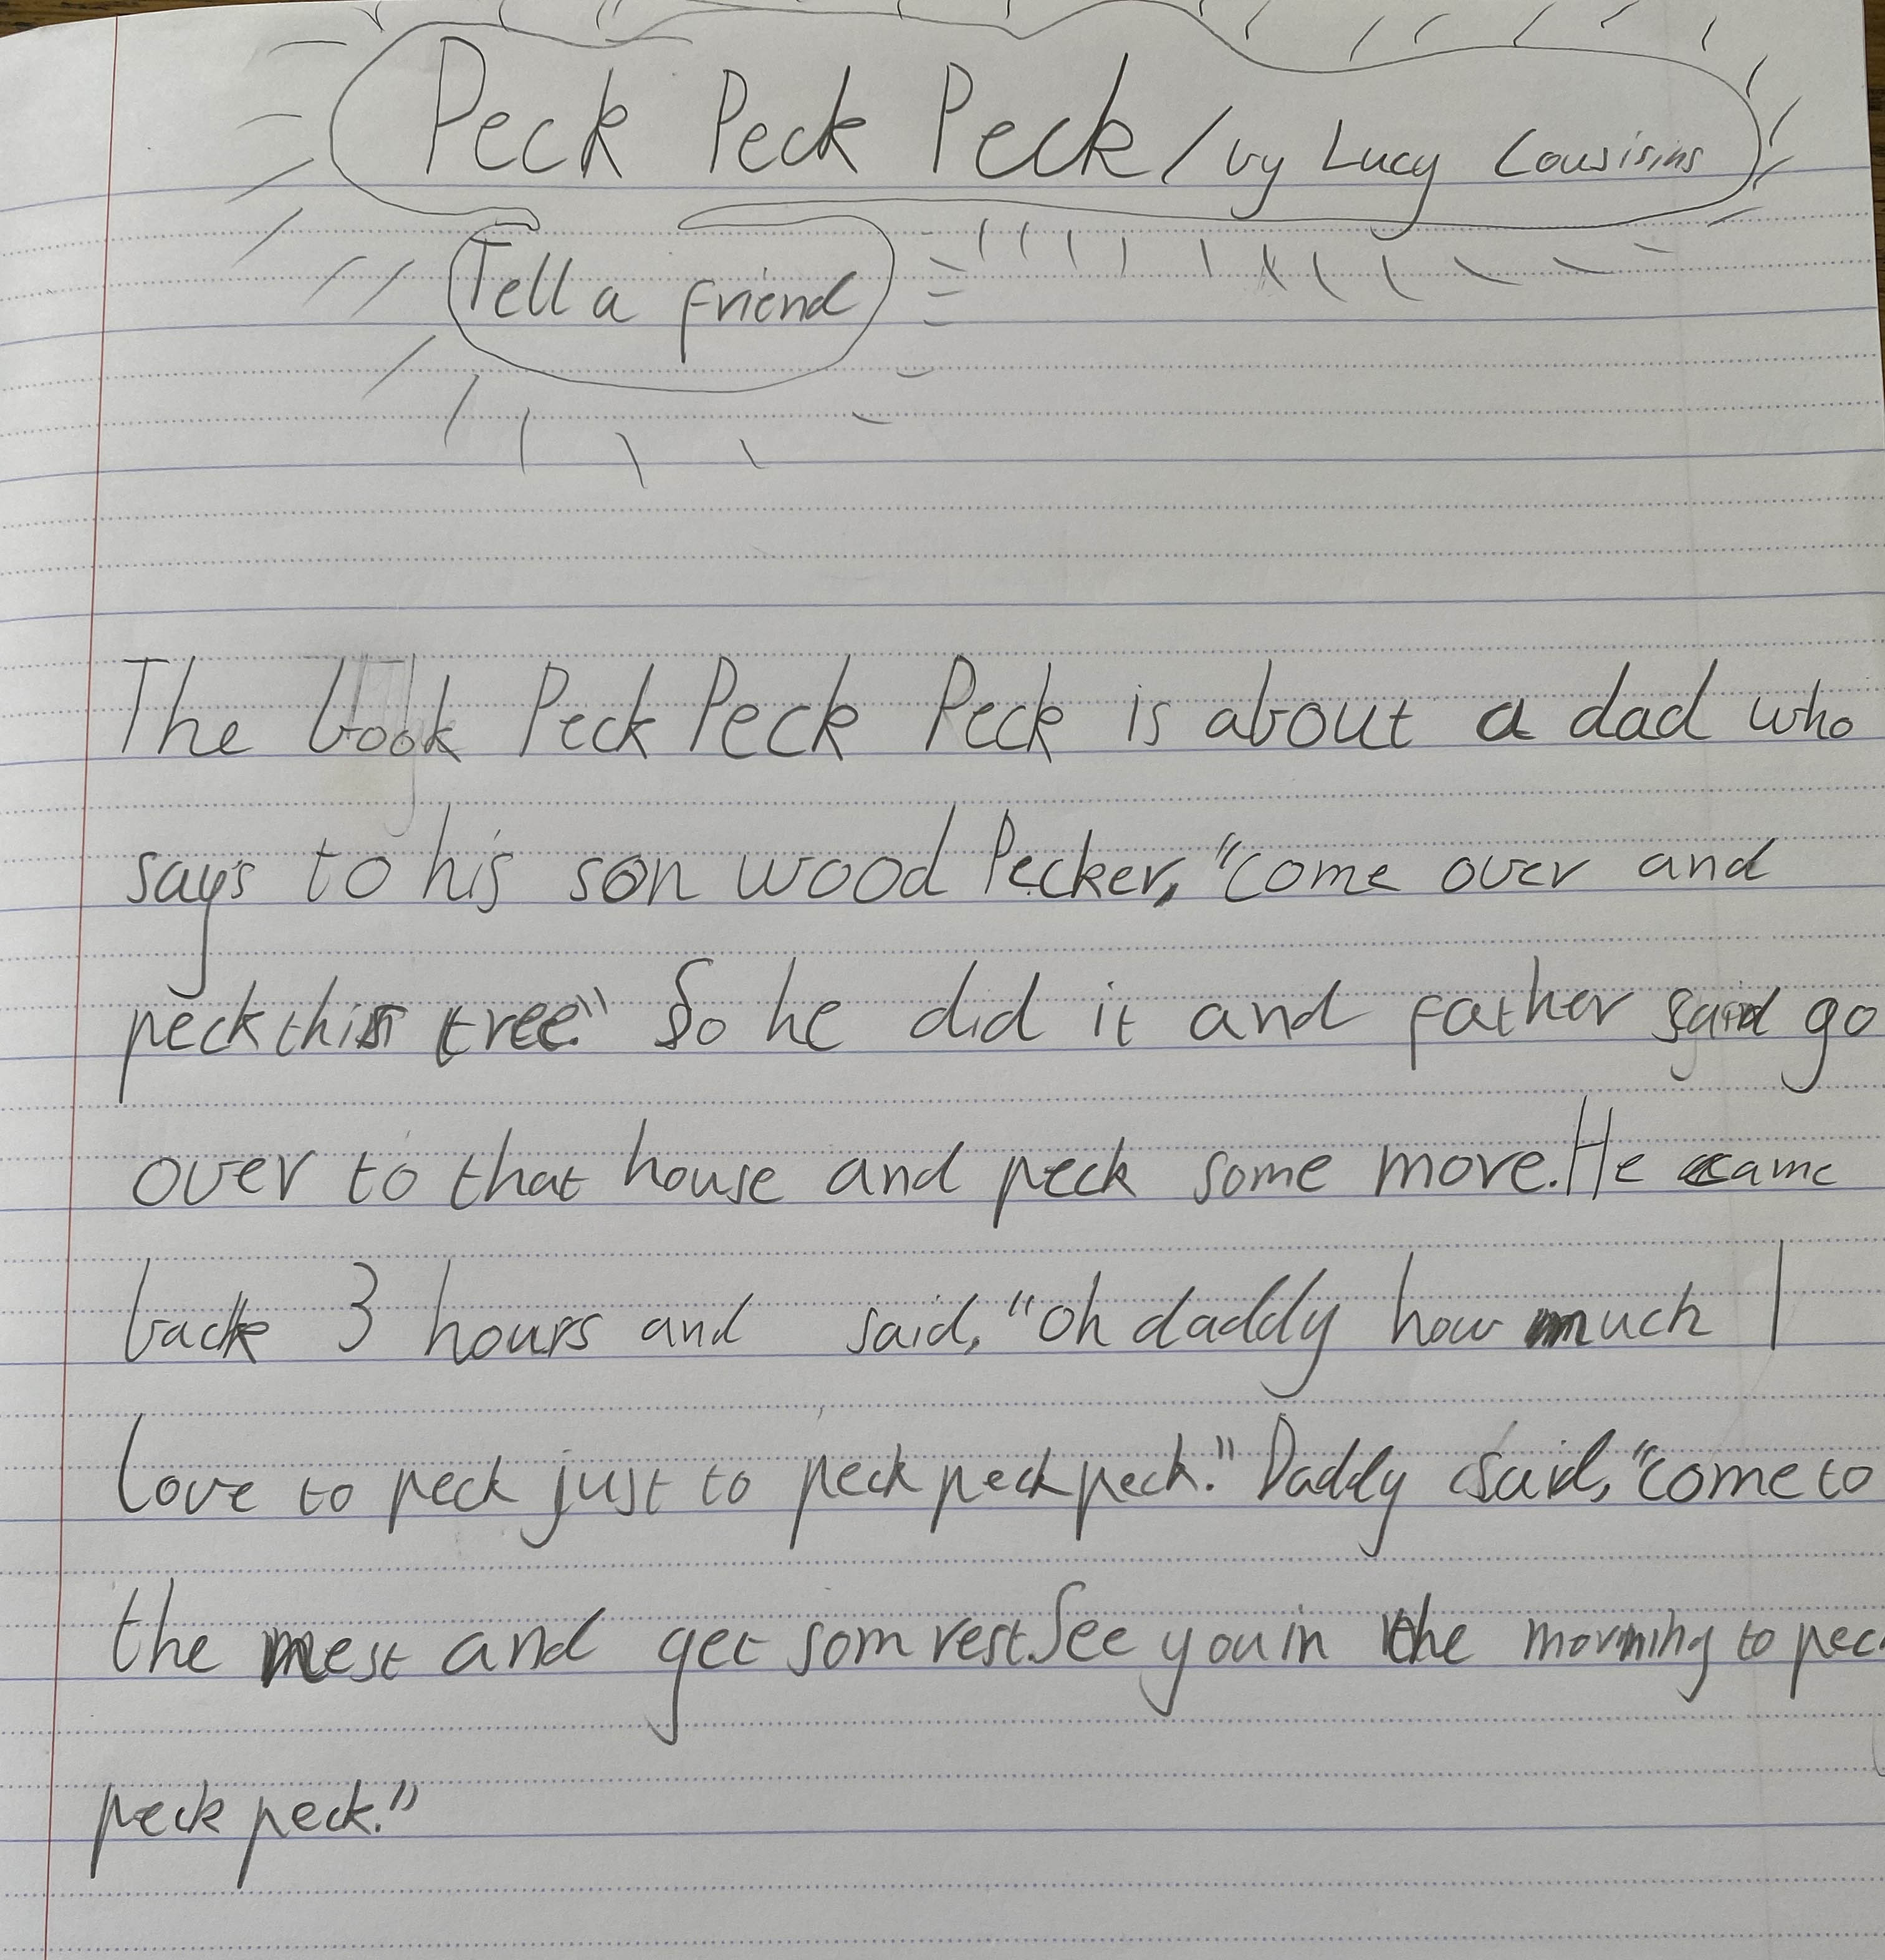 Peck Peck Peck / by Lucy Cousisins
Tell a friend
The book Peck Peck Peck is about a dad who
says to his son wood Pecker, "come over and
peck this tree." So he did it and father said go
over to that house and peck some more. He came
back 3 hours and said, "oh daddy how much I
love to peck just to peck peck peck." Daddy said, "come to
the nest and get som rest. See you in the morning to pec
peck peck."